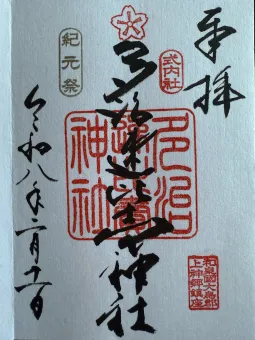 奉拝
式内社
多治速比売神社
紀元祭
令和八年二月十一日
多治
速賣
神社
和泉國大鳥郡
上神郷鎮座